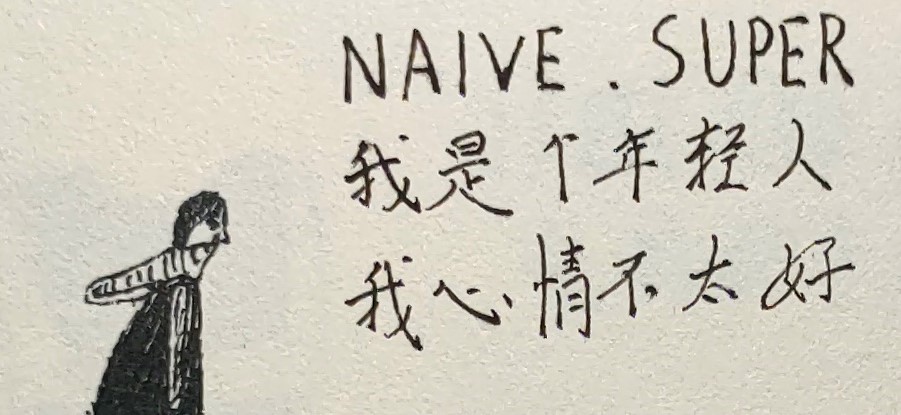 NAIVE . SUPER
我是个年轻人
我心情不太好